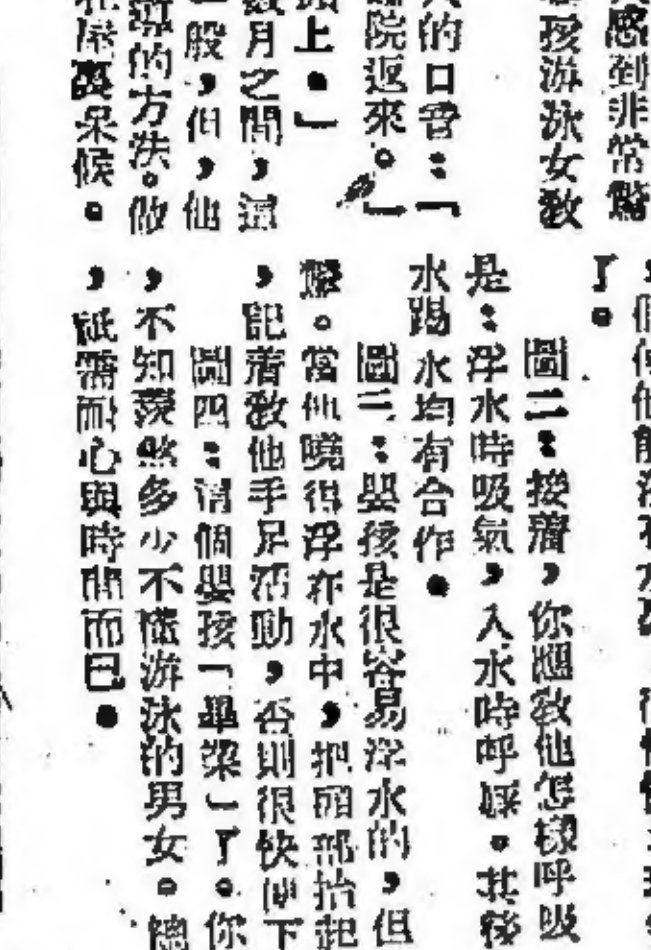 感到非常驚
孩游泳女教
的口音：「
院返來。」
上。」
數月之間，還
般，但，他
的方法。做
在屋裏呆候。
了。
圖二：接着，你應教他怎樣呼吸
是：浮水時吸氣，入水時呼　。其
水踢水均有合作。
圖三：嬰孩是很容易浮水的，但
。當他曉得浮在水中，把頭部抬起
，記着教他手足活動，否則很快便下
圖四：這個嬰孩「畢業」了。你
，不知羨煞多少不懂游泳的男女。總
，祇需耐心與時間而已。